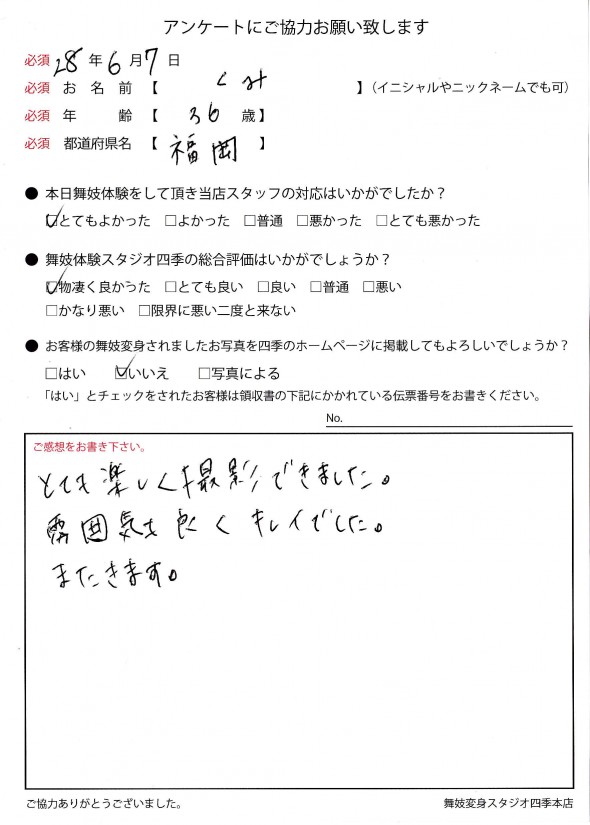 アンケートにご協力お願い致します
必須 28年6月7日
必須 お名前【 くみ 】（イニシャルやニックネームでも可）
必須 年齢【 36 歳】
必須 都道府県名【 福岡 】
● 本日舞妓体験をして頂き当店スタッフの対応はいかがでしたか？
☑とてもよかった □よかった □普通 □悪かった □とても悪かった
● 舞妓体験スタジオ四季の総合評価はいかがでしょうか？
☑物凄く良かった □とても良い □良い □普通 □悪い
□かなり悪い □限界に悪い二度と来ない
● お客様の舞妓変身されましたお写真を四季のホームページに掲載してもよろしいでしょうか？
□はい ☑いいえ □写真による
「はい」とチェックをされたお客様は領収書の下記にかかれている伝票番号をお書きください。
No.
ご感想をお書き下さい。
とても楽しく撮影できました。
雰囲気も良くキレイでした。
またきます。
ご協力ありがとうございました。
舞妓変身スタジオ四季本店